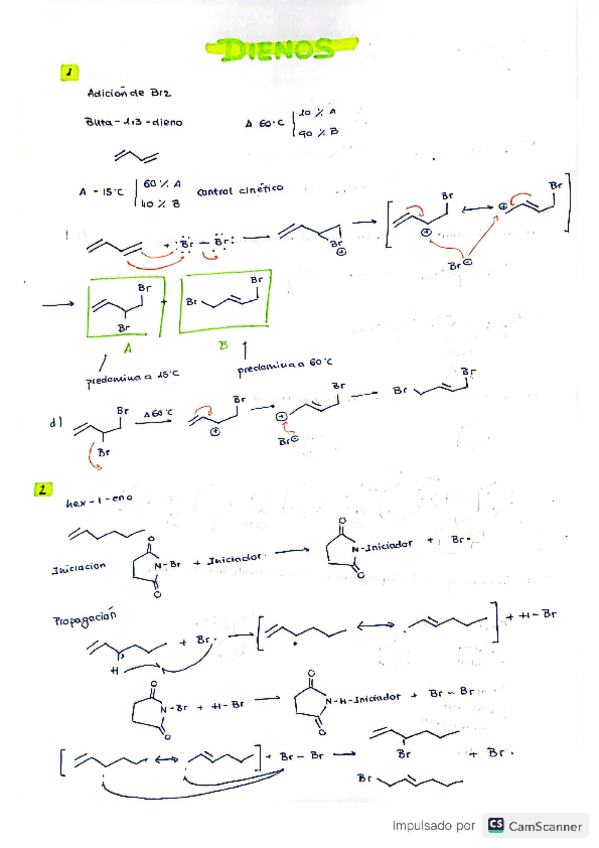 DIENOS
1
Adición de Br2
Buta-1,3-dieno
Δ 60°C
10 % A
90 % B
A -15°C
60 % A
40 % B
control cinético
+ Br – Br
Br
Br
Br
Br
Br ⊖
Br
Br
+
Br
Br
A
B
predomina a 15°C
predomina a 60°C
d)
Br
Br
Δ 60°C
Br
Br
Br ⊖
Br
Br
2
hex-1-eno
Iniciación
O
N-Br + Iniciador·
O
O
N-Iniciador + Br·
O
Propagación
H
+ Br·
+ H-Br
O
N-Br + H-Br
O
O
N-H-Iniciador + Br-Br
O
+ Br-Br
Br
Br
+ Br·
Impulsado por CS CamScanner